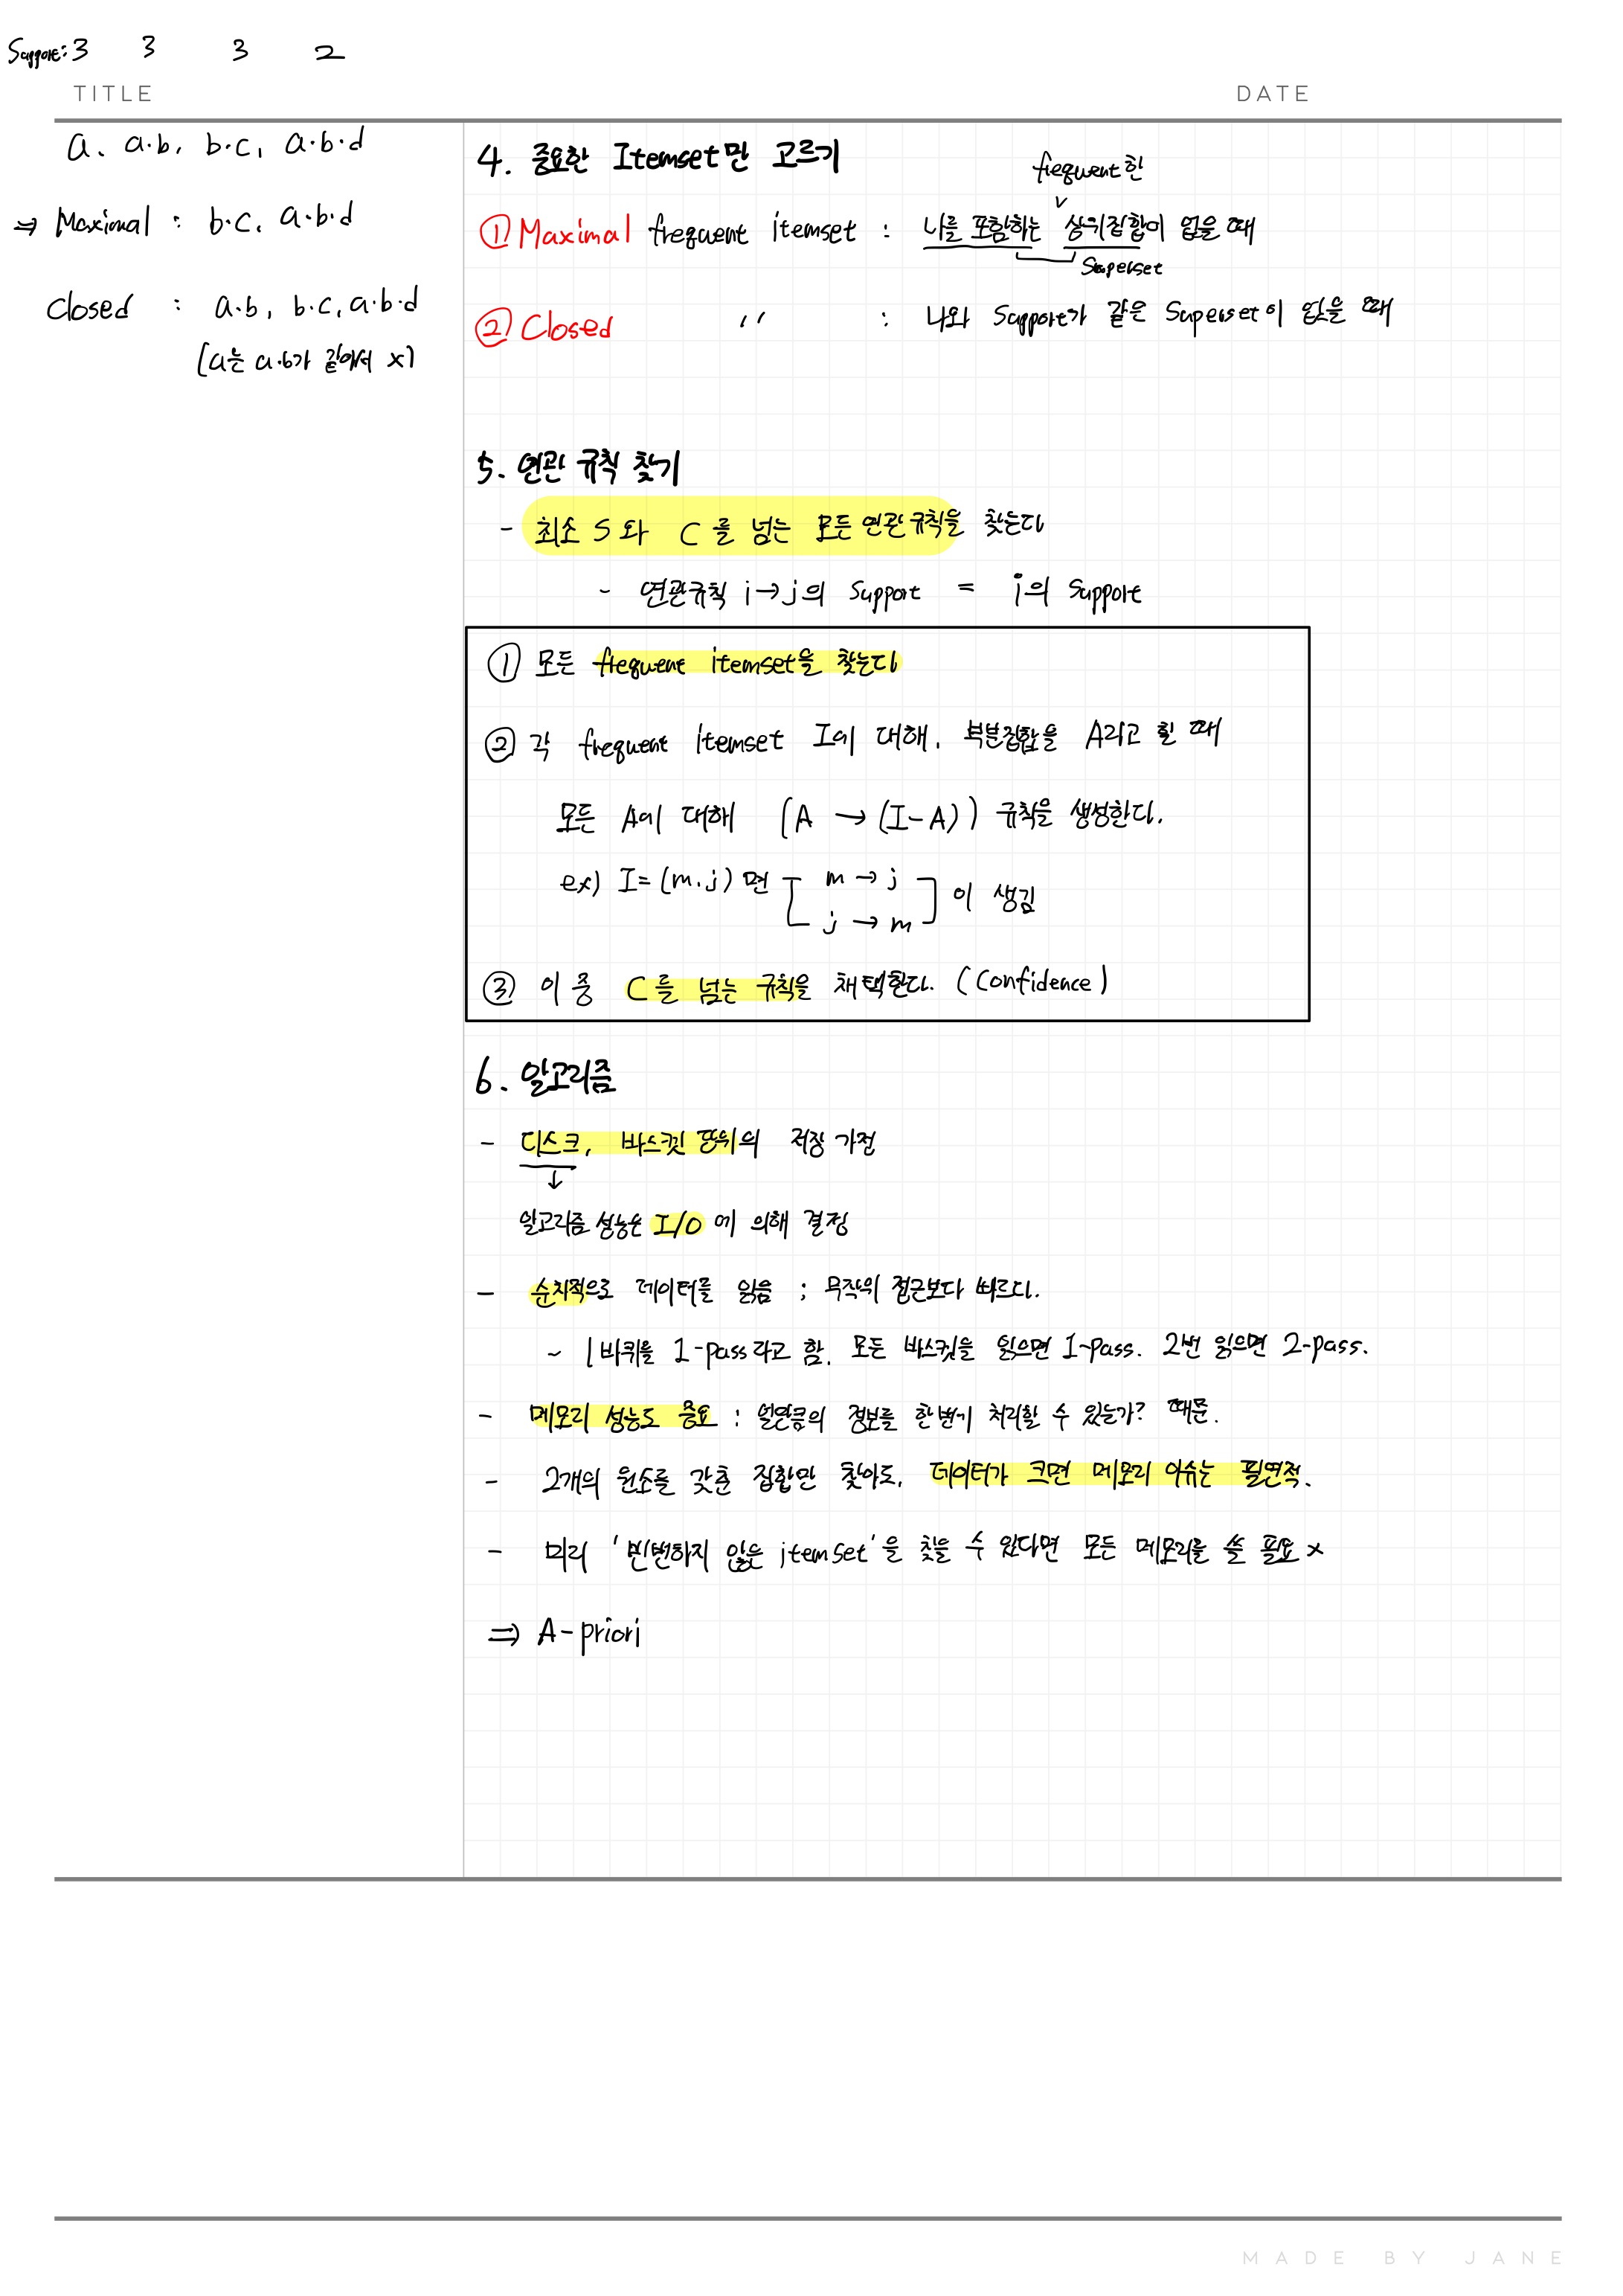 Support: 3 3 3 2
TITLE
DATE
a, a·b, b·c, a·b·d
⇒ Maximal : b·c, a·b·d
Closed : a·b, b·c, a·b·d
(a는 a·b가 같아서 x)
4. 중요한 Itemset만 고르기
frequent한
① Maximal frequent itemset : 나를 포함하는 ∨ 상위집합이 없을 때
Superset
② Closed 〃 : 나와 Support가 같은 Superset이 없을 때
5. 연관 규칙 찾기
- 최소 S와 C를 넘는 모든 연관규칙을 찾는다
- 연관규칙 i→j의 Support = i의 Support
① 모든 frequent itemset을 찾는다
② 각 frequent itemset I에 대해, 부분집합을 A라고 할 때
모든 A에 대해 (A → (I-A)) 규칙을 생성한다.
ex) I=(m.j)면 [ m → j
j → m ] 이 생김
③ 이 중 C를 넘는 규칙을 채택한다. (Confidence)
6. 알고리즘
- 디스크, 바스킷 단위의 저장 가정
↓
알고리즘 성능은 I/O에 의해 결정
- 순차적으로 데이터를 읽음 ; 무작위 접근보다 빠르다.
~ 1바퀴를 1-pass라고 함. 모든 바스킷을 읽으면 1-pass. 2번 읽으면 2-pass.
- 메모리 성능도 중요 : 얼만큼의 정보를 한번에 처리할 수 있는가? 때문.
- 2개의 원소를 갖춘 집합만 찾아도, 데이터가 크면 메모리 이슈는 필연적.
- 미리 '빈번하지 않은 itemset'을 찾을 수 있다면 모든 메모리를 쓸 필요 x
⇒ A-priori
MADE BY JANE